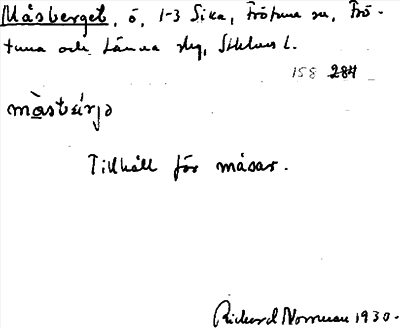 Måsberget, ö, 1-3 Sika, Frötuna sn, Frö-
tuna och Länna skg, Sthlms l.
158 284
måsbärjə
Tillhåll för måsar.
Richard Norrman 1930.